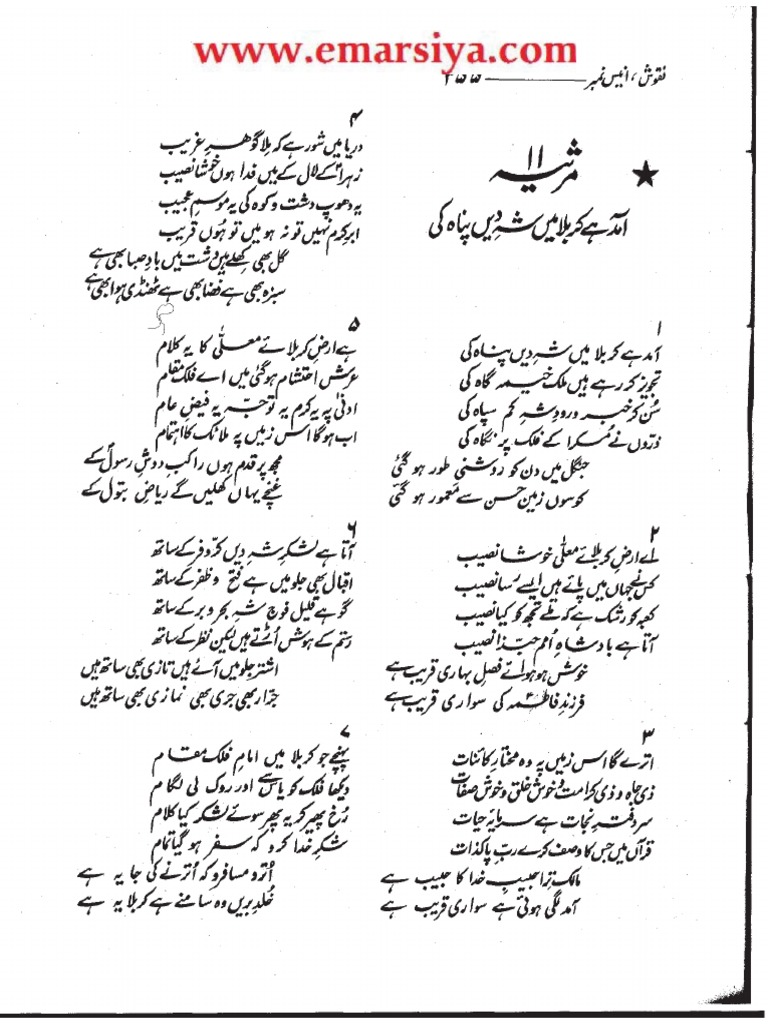 www.emarsiya.com
نقوش، انیس نمبر ـــــــــ ۲۷۷
★ مرثیہ ۱۱
آمد ہے کربلا میں شہِ دیں پناہ کی
۱
آمد ہے کربلا میں شہِ دیں پناہ کی
تجویز کر رہے ہیں ملک خیمہ گاہ کی
سُن کر خبر ورودِ شہِ کم سپاہ کی
ذرّوں نے مُسکرا کے فلک پر نگاہ کی
جنگل میں دن کو روشنیِ طور ہو گئی
کوسوں زمین حسن سے معمور ہو گئی
۲
اے ارضِ کربلائے معلّٰی خوشا نصیب
کس نے جہاں میں پائے ہیں ایسے رسا نصیب
کعبہ کو رشک ہے کہ ملے تجھ کو کیا نصیب
آتا ہے بادشاہِ اُمم حبّذا نصیب
خوش ہو ہوائے فصلِ بہاری قریب ہے
فرزندِ فاطمہؑ کی سواری قریب ہے
۳
اترے گا اس زمیں پہ وہ مختارِ کائنات
ذی جاہ و ذی کرامت و خوش خلق و خوش صفات
سر دفترِ نجات ہے سرمایۂ حیات
قرآں میں جس کا وصف کرے ربِّ پاک ذات
مالک ترا حبیبِ خدا کا حبیب ہے
آمد لگی ہوئی ہے سواری قریب ہے
۴
دریا میں شور ہے کہ ملا گوہرِ غریب
زہراؑ کے لال کے ہیں فدا ہوں خوشا نصیب
یہ دھوپ دشت و کوہ کی یہ موسمِ عجیب
ابرِ کرم نہیں تو نہ ہو میں تو ہُوں قریب
گل بھی کھلے ہیں دشت میں بادِ صبا بھی ہے
سبزہ بھی ہے فضا بھی ہے ٹھنڈی ہوا بھی ہے
۵
ہے ارضِ کربلائے معلّٰی کا یہ کلام
عرش احتشام ہو گئی میں اے فلک مقام
ادنیٰ پہ یہ کرم یہ توجّہ یہ فیضِ عام
اب ہوگا اس زمیں پہ ملائک کا اہتمام
مجھ پر قدم ہوں راکبِ دوشِ رسولؐ کے
غنچے یہاں کھلیں گے ریاضِ بتولؑ کے
۶
آتا ہے لشکرِ شہِ دیں کرّ و فر کے ساتھ
اقبال بھی جلو میں ہے فتح و ظفر کے ساتھ
گو ہے قلیل فوج شہِ بحر و بر کے ساتھ
رستم کے ہوش اُڑتے ہیں لیکن نظر کے ساتھ
اشتر جلو میں آئے ہیں تازی بھی ساتھ ہیں
جرّار بھی جری بھی نمازی بھی ساتھ ہیں
۷
پہنچے جو کربلا میں امامِ فلک مقام
دیکھا فلک کو یاس سے اور روک لی لگام
رُخ پھیر کر یہ پھر سوئے لشکر کیا کلام
شکرِ خدا کرو کہ سفر ہو گیا تمام
اُترو مسافرو کہ اُترنے کی جا یہ ہے
خُلدِ بریں وہ سامنے ہے کربلا یہ ہے